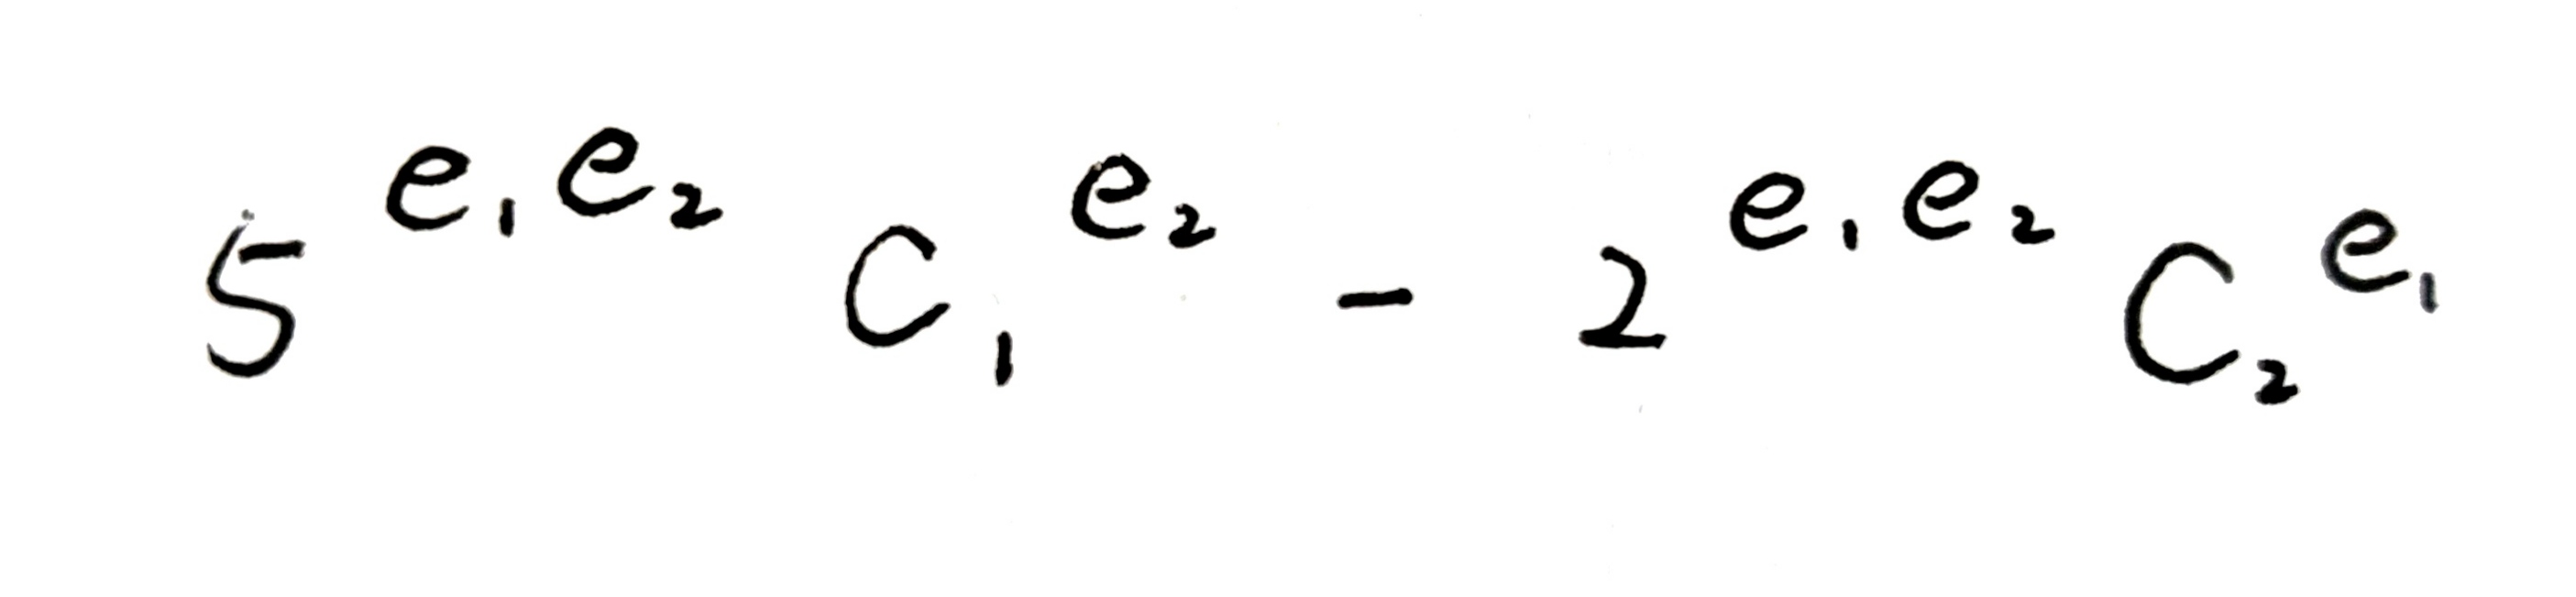 5^{e_1 e_2} C_1^{e_2} - 2^{e_1 e_2} C_2^{e_1}